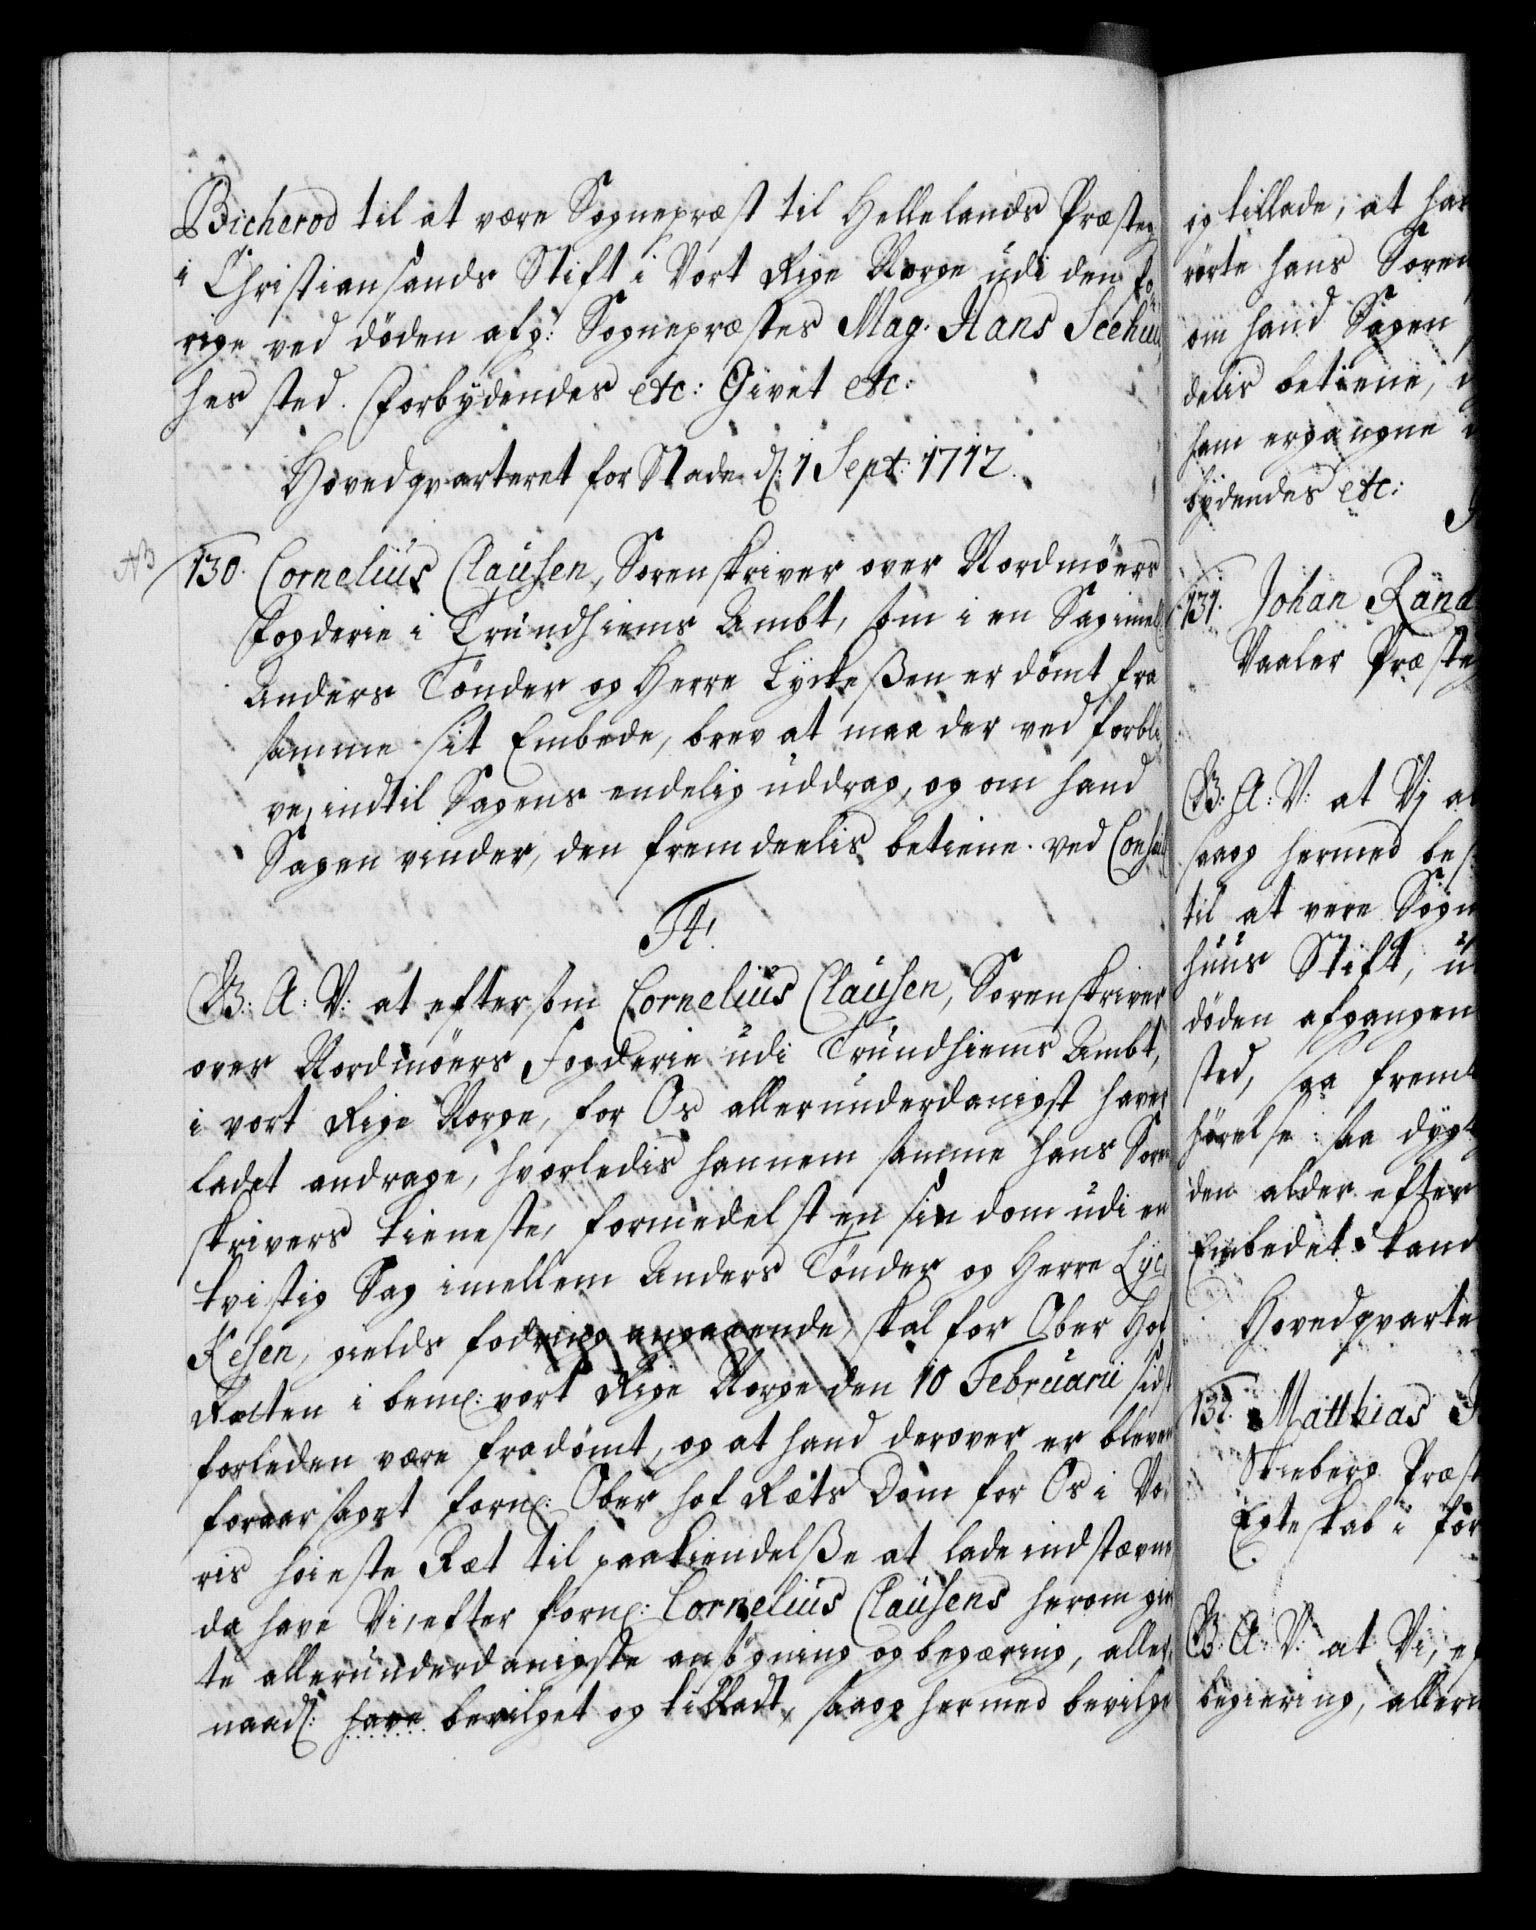 Bicherod til at være Sognepræst til Hellelands Præsteg
i Christiansands Stift i Vort Rige Norge udi den fo¬
rige ved döden afg: Sognepræstes Mag. Hans Seehuu¬
hes sted. Forbydendes etc: Givet etc:
Hovedqvarteret for Stade d: 1 Sept: 1712.
NB
130. Cornelius Clausen, Sorenskriver over Nordmöers
Fogderie i Trundhiems Ambt, som i en Sag imell:
Anders Tönder og Herre Lyckeßen er dömt fra
samme sit Embede, brev at maa der ved forbli¬
ve, indtil Sagens endelig uddrag, og om hand
Sagen vinder, den fremdeelis betiene. ved Conseil
F4.
G: A: V: at eftersom Cornelius Clausen, Sorenskriver
over Nordmöers Fogderie udi Trundhiems Ambt,
i vort Rige Norge, for Os allerunderdanigst haver
ladet andrage, hvorledis hannem samme hans Soren
skrivers tieneste, formedelst en sin dom udi en
tvistig Sag imellem Anders Tönder og Herre Lyc¬
Kesen, gields fodring angaaende, skal for Ober Hof
Rætten i bem: vort Rige Norge den 10 Februarii sidst
forleden være fradömt, og at hand derover er bleven
foraarsaget forn: Ober hof Ræts Dom for Os i Vo¬
ris höieste Ræt til paakiendelße at lade indstævne
da have Vi, efter forn: Cornelius Clausens herom gior
te allerunderdanigste ansögning og begæring, aller¬
naad: have bevilget og tilladt, saa og hermed bevilge
og tillade, at han
rörte hans Soren
om hand Sagen
delis betiene,
ham ergangne
bydendes etc:
131. Johan Rand
Vaaler Præste
G: A: V: at Vi al
saa og hermed be
til at vere Sogn
huus Stift, u
döden afgangen
sted, saa freml
hörelse saa dygt
den alder efter
Embedet kand
Hovedqvarte
132. Matthias
Skieberg Præst
Egteskab i for
G: A: V: at Vi, ef
begiering, allern